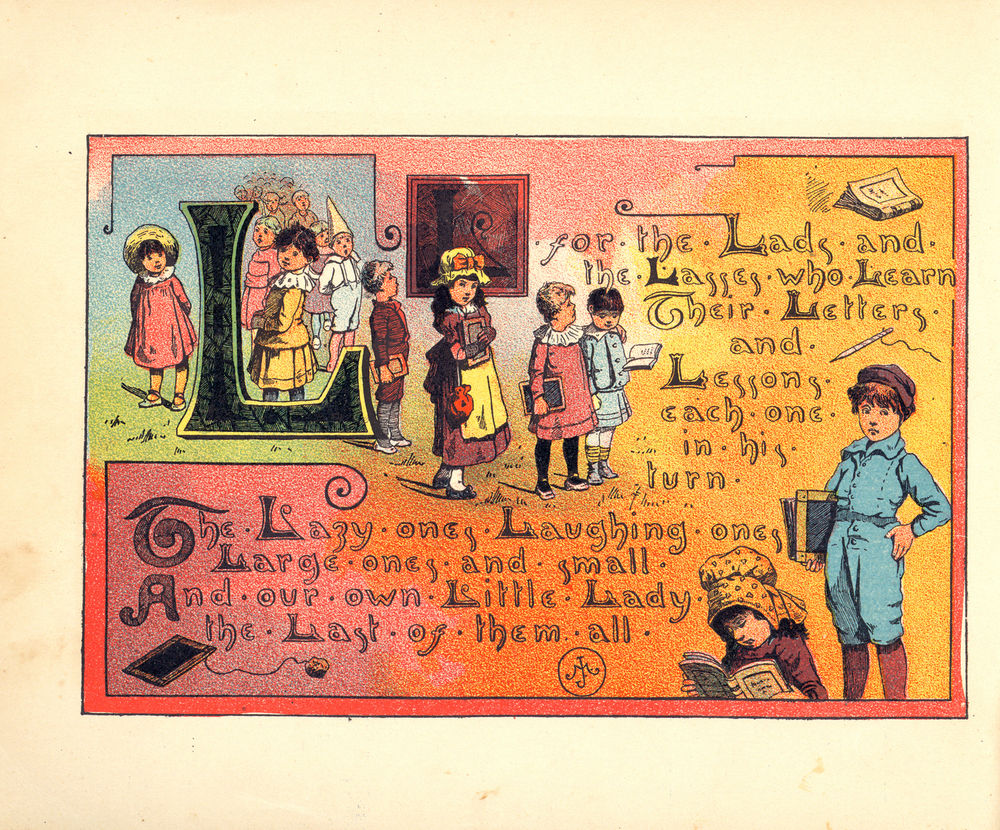 L for the Lads and
the Lasses who Learn
Their Letters
and
Lessons
each one
in his
turn
The Lazy ones Laughing ones
Large ones and small
And our own Little Lady
the Last of them all